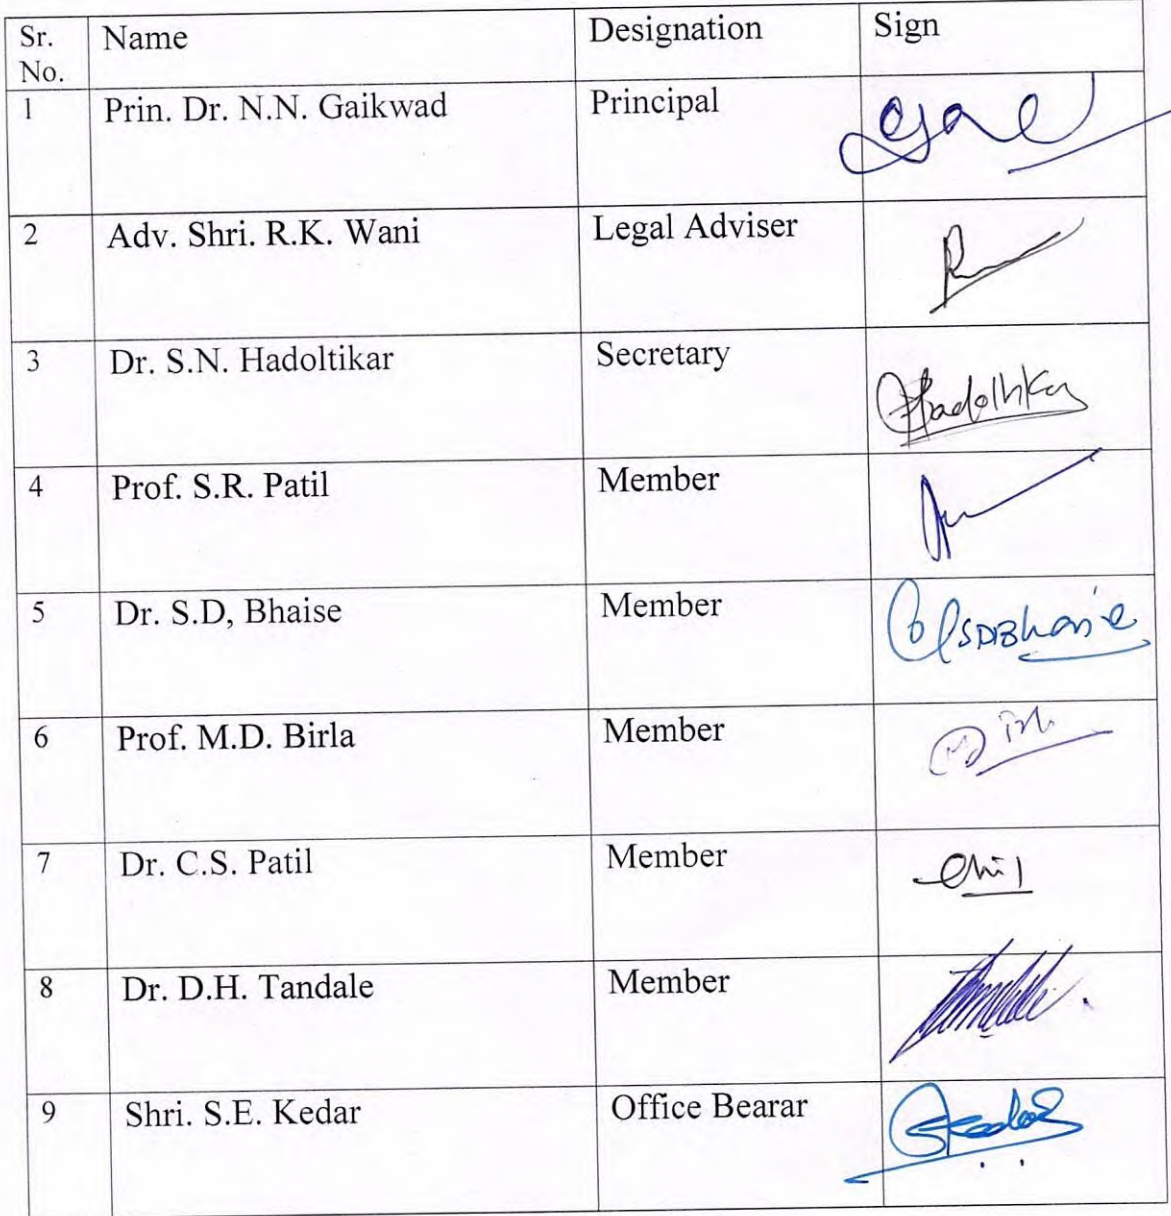 Sr. No. Name Designation Sign
1 Prin. Dr. N.N. Gaikwad Principal
2 Adv. Shri. R.K. Wani Legal Adviser
3 Dr. S.N. Hadoltikar Secretary Hadoltikar
4 Prof. S.R. Patil Member
5 Dr. S.D, Bhaise Member SDBhaise
6 Prof. M.D. Birla Member
7 Dr. C.S. Patil Member
8 Dr. D.H. Tandale Member
9 Shri. S.E. Kedar Office Bearar